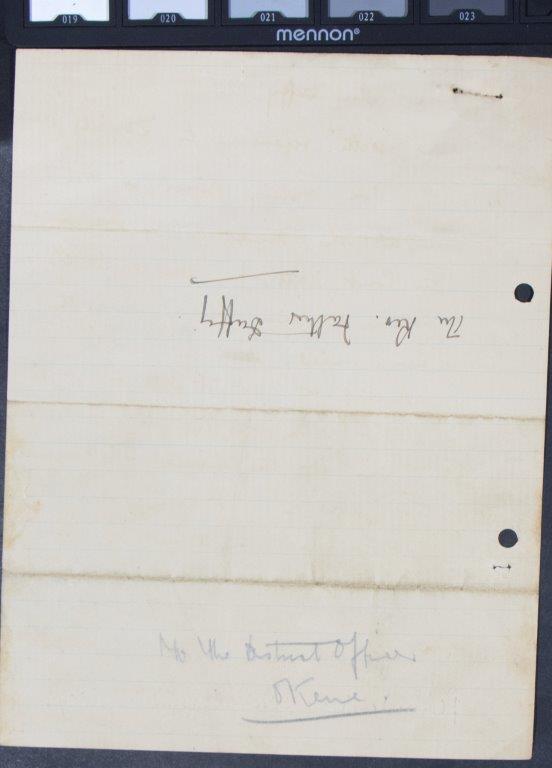 019 020 021 022 023
mennon®
The Rev. Father Duffy
To the District Officer
Okene.